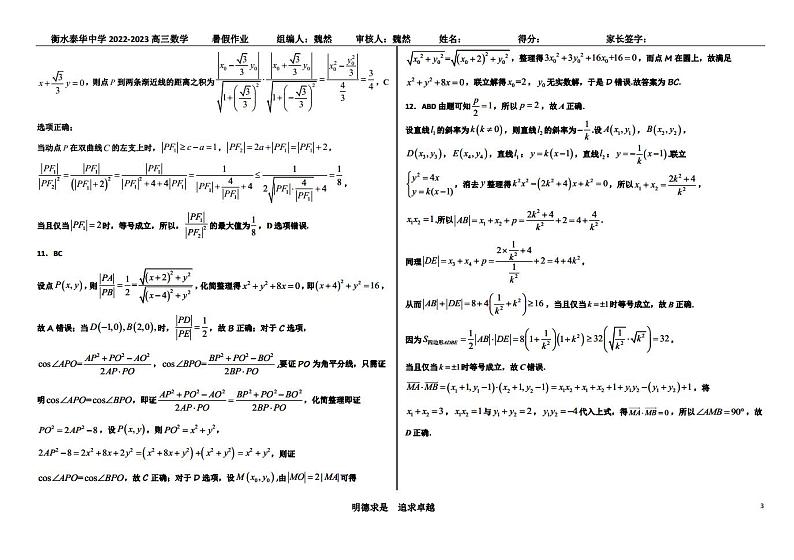 衡水泰华中学 2022-2023 高三数学 暑假作业 组编人：魏然 审核人：魏然 姓名： 得分： 家长签字：
x+\frac{\sqrt{3}}{3}y=0，则点 P 到两条渐近线的距离之积为 \frac{|x_0-\frac{\sqrt{3}}{3}y_0|}{\sqrt{1+(\frac{\sqrt{3}}{3})^2}}·\frac{|x_0+\frac{\sqrt{3}}{3}y_0|}{\sqrt{1+(-\frac{\sqrt{3}}{3})^2}}=\frac{|x_0^2-\frac{y_0^2}{3}|}{\frac{4}{3}}=\frac{3}{4}，C
选项正确；
当动点 P 在双曲线 C 的左支上时，|PF_1|≥c-a=1，|PF_2|=2a+|PF_1|=|PF_1|+2，
\frac{|PF_1|}{|PF_2|^2}=\frac{|PF_1|}{(|PF_1|+2)^2}=\frac{|PF_1|}{|PF_1|^2+4+4|PF_1|}=\frac{1}{|PF_1|+\frac{4}{|PF_1|}+4}≤\frac{1}{2\sqrt{|PF_1|·\frac{4}{|PF_1|}}+4}=\frac{1}{8}，
当且仅当 |PF_1|=2 时，等号成立，所以，\frac{|PF_1|}{|PF_2|^2} 的最大值为 \frac{1}{8}，D 选项错误.
11．BC
设点 P(x,y)，则 \frac{|PA|}{|PB|}=\frac{1}{2}=\frac{\sqrt{(x+2)^2+y^2}}{\sqrt{(x-4)^2+y^2}}，化简整理得 x^2+y^2+8x=0，即 (x+4)^2+y^2=16，
故 A 错误；当 D(-1,0),B(2,0) 时，\frac{|PD|}{|PE|}=\frac{1}{2}，故 B 正确；对于 C 选项，
cos∠APO=\frac{AP^2+PO^2-AO^2}{2AP·PO}，cos∠BPO=\frac{BP^2+PO^2-BO^2}{2BP·PO},要证 PO 为角平分线，只需证
明 cos∠APO=cos∠BPO，即证 \frac{AP^2+PO^2-AO^2}{2AP·PO}=\frac{BP^2+PO^2-BO^2}{2BP·PO}，化简整理即证
PO^2=2AP^2-8，设 P(x,y)，则 PO^2=x^2+y^2，
2AP^2-8=2x^2+8x+2y^2=(x^2+8x+y^2)+(x^2+y^2)=x^2+y^2，则证
cos∠APO=cos∠BPO，故 C 正确；对于 D 选项，设 M(x_0,y_0),由 |MO|=2|MA| 可得
\sqrt{x_0^2+y_0^2}=\sqrt{(x_0+2)^2+y_0^2}，整理得 3x_0^2+3y_0^2+16x_0+16=0，而点 M 在圆上，故满足
x^2+y^2+8x=0，联立解得 x_0=2，y_0 无实数解，于是 D 错误.故答案为 BC.
12．ABD 由题可知 \frac{p}{2}=1，所以 p=2，故 A 正确.
设直线 l_1 的斜率为 k(k≠0)，则直线 l_2 的斜率为 -\frac{1}{k}.设 A(x_1,y_1)，B(x_2,y_2)，
D(x_3,y_3)，E(x_4,y_4)，直线 l_1：y=k(x-1)，直线 l_2：y=-\frac{1}{k}(x-1).联立
{y^2=4x, y=k(x-1)，消去 y 整理得 k^2x^2-(2k^2+4)x+k^2=0，所以 x_1+x_2=\frac{2k^2+4}{k^2}，
x_1x_2=1.所以 |AB|=x_1+x_2+p=\frac{2k^2+4}{k^2}+2=4+\frac{4}{k^2}.
同理 |DE|=x_3+x_4+p=\frac{2×\frac{1}{k^2}+4}{\frac{1}{k^2}}+2=4+4k^2，
从而 |AB|+|DE|=8+4(\frac{1}{k^2}+k^2)≥16，当且仅当 k=±1 时等号成立，故 B 正确.
因为 S_{四边形ADBE}=\frac{1}{2}|AB|·|DE|=8(1+\frac{1}{k^2})(1+k^2)≥32\sqrt{\frac{1}{k^2}·k^2}=32，
当且仅当 k=±1 时等号成立，故 C 错误.
\overrightarrow{MA}·\overrightarrow{MB}=(x_1+1,y_1-1)·(x_2+1,y_2-1)=x_1x_2+x_1+x_2+1+y_1y_2-(y_1+y_2)+1，将
x_1+x_2=3，x_1x_2=1 与 y_1+y_2=2，y_1y_2=-4 代入上式，得 \overrightarrow{MA}·\overrightarrow{MB}=0，所以 ∠AMB=90°，故
D 正确.
明德求是 追求卓越
3